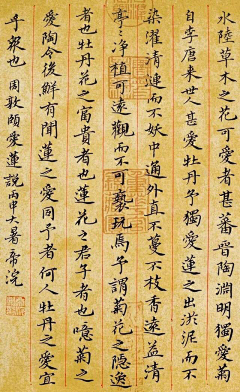 水陸草木之花可愛者甚蕃晉陶淵明獨愛菊
自李唐來世人甚愛牡丹予獨愛蓮之出淤泥而不
染濯清漣而不妖中通外直不蔓不枝香遠益清
亭〻淨植可遠觀而不可褻玩焉予謂菊花之隱逸
者也牡丹花之富貴者也蓮花之君子者也噫菊之
愛陶令後鮮有聞蓮之愛同予者何人牡丹之愛宜
乎眾也 周敦頤愛蓮說丙申大暑